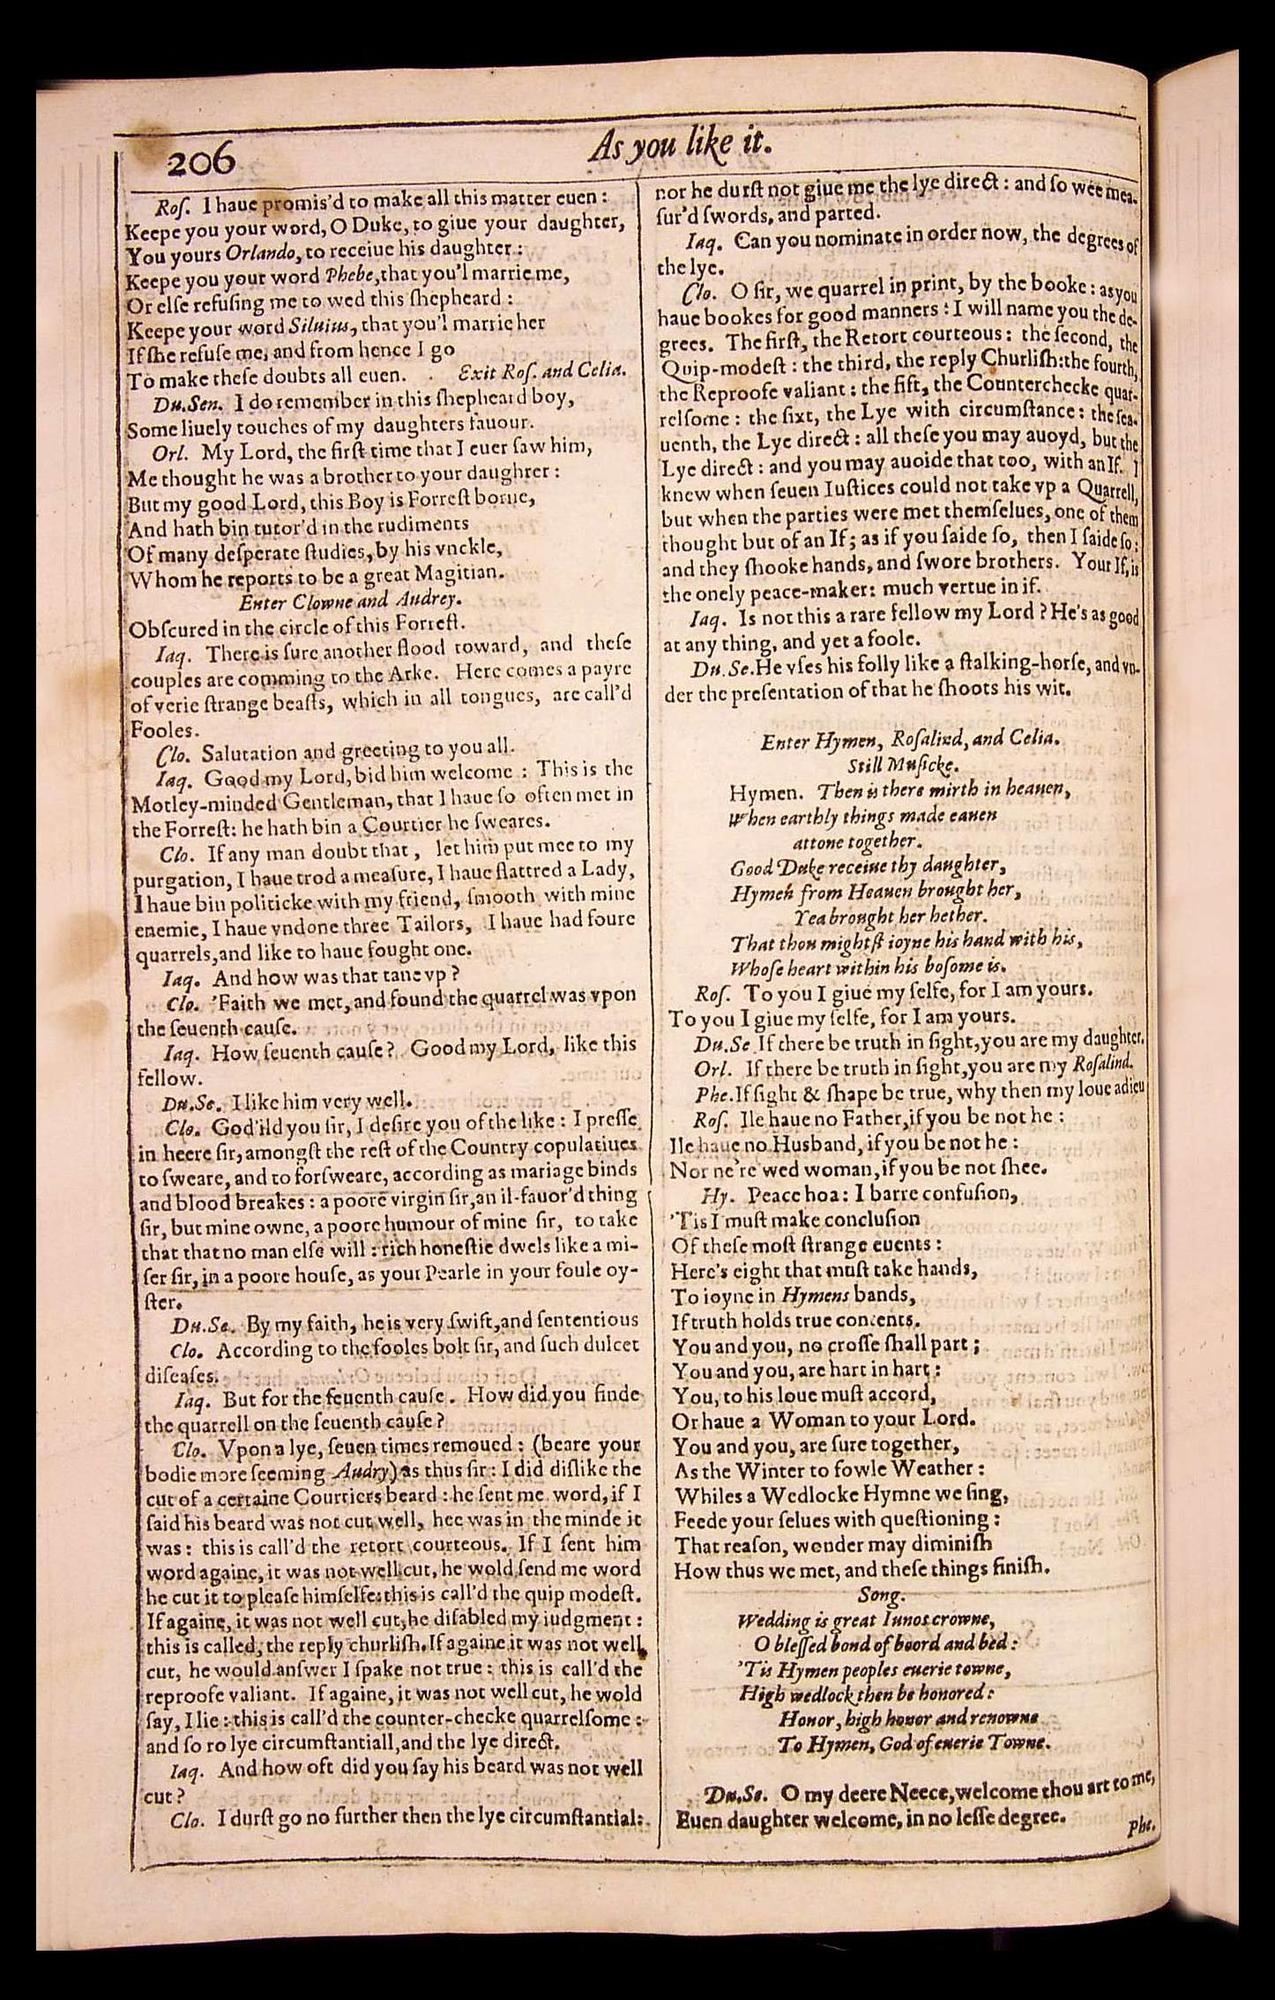 206
As you like it.
Roſ. I haue promis'd to make all this matter euen:
Keepe you your word, O Duke, to giue your daughter,
You yours Orlando, to receiue his daughter:
Keepe you your word Phebe, that you'l marrie me,
Or elſe refuſing me to wed this ſhepheard:
Keepe your word Siluius, that you'l marrie her
If ſhe refuſe me, and from hence I go
To make theſe doubts all euen. Exit Roſ. and Celia.
Du.Sen. I do remember in this ſhepheard boy,
Some liuely touches of my daughters fauour.
Orl. My Lord, the firſt time that I euer ſaw him,
Me thought he was a brother to your daughrer:
But my good Lord, this Boy is Forreſt borne,
And hath bin tutor'd in the rudiments
Of many deſperate ſtudies, by his vnckle,
Whom he reports to be a great Magitian.
Enter Clowne and Audrey.
Obſcured in the circle of this Forreſt.
Iaq. There is ſure another flood toward, and theſe
couples are comming to the Arke. Here comes a payre
of verie ſtrange beaſts, which in all tongues, are call'd
Fooles.
Clo. Salutation and greeting to you all.
Iaq. Good my Lord, bid him welcome: This is the
Motley-minded Gentleman, that I haue ſo often met in
the Forreſt: he hath bin a Courtier he ſweares.
Clo. If any man doubt that, let him put mee to my
purgation, I haue trod a meaſure, I haue flattred a Lady,
I haue bin politicke with my friend, ſmooth with mine
enemie, I haue vndone three Tailors, I haue had foure
quarrels, and like to haue fought one.
Iaq. And how was that tane vp?
Clo. 'Faith we met, and found the quarrel was vpon
the ſeuenth cauſe.
Iaq. How ſeuenth cauſe? Good my Lord, like this
fellow.
Du.Se. I like him very well.
Clo. God'ild you ſir, I deſire you of the like: I preſſe
in heere ſir, amongſt the reſt of the Country copulatiues
to ſweare, and to forſweare, according as mariage binds
and blood breakes: a poore virgin ſir, an il-fauor'd thing
ſir, but mine owne, a poore humour of mine ſir, to take
that that no man elſe will: rich honeſtie dwels like a mi-
ſer ſir, in a poore houſe, as your Pearle in your foule oy-
ſter.
Du.Se. By my faith, he is very ſwift, and ſententious
Clo. According to the fooles bolt ſir, and ſuch dulcet
diſeaſes.
Iaq. But for the ſeuenth cauſe. How did you finde
the quarrell on the ſeuenth cauſe?
Clo. Vpon a lye, ſeuen times remoued: (beare your
bodie more ſeeming Audry) as thus ſir: I did diſlike the
cut of a certaine Courtiers beard: he ſent me word, if I
ſaid his beard was not cut well, hee was in the minde it
was: this is call'd the retort courteous. If I ſent him
word againe, it was not well cut, he wold ſend me word
he cut it to pleaſe himſelfe: this is call'd the quip modeſt.
If againe, it was not well cut, he diſabled my iudgment:
this is called, the reply churliſh. If againe it was not well
cut, he would anſwer I ſpake not true: this is call'd the
reproofe valiant. If againe, it was not well cut, he wold
ſay, I lie: this is call'd the counter-checke quarrelſome:
and ſo ro lye circumſtantiall, and the lye direct.
Iaq. And how oft did you ſay his beard was not well
cut?
Clo. I durſt go no further then the lye circumſtantial:
nor he durſt not giue me the lye direct: and ſo wee mea-
ſur'd ſwords, and parted.
Iaq. Can you nominate in order now, the degrees of
the lye.
Clo. O ſir, we quarrel in print, by the booke: as you
haue bookes for good manners: I will name you the de-
grees. The firſt, the Retort courteous: the ſecond, the
Quip-modeſt: the third, the reply Churliſh: the fourth,
the Reproofe valiant: the fift, the Counterchecke quar-
relſome: the ſixt, the Lye with circumſtance: the ſea-
uenth, the Lye direct: all theſe you may auoyd, but the
Lye direct: and you may auoide that too, with an If. I
knew when ſeuen Iuſtices could not take vp a Quarrell,
but when the parties were met themſelues, one of them
thought but of an If; as if you ſaide ſo, then I ſaide ſo:
and they ſhooke hands, and ſwore brothers. Your If, is
the onely peace-maker: much vertue in if.
Iaq. Is not this a rare fellow my Lord? He's as good
at any thing, and yet a foole.
Du.Se. He vſes his folly like a ſtalking-horſe, and vn-
der the preſentation of that he ſhoots his wit.
Enter Hymen, Roſalind, and Celia.
Still Muſicke.
Hymen. Then is there mirth in heauen,
When earthly things made eauen
attone together.
Good Duke receiue thy daughter,
Hymen from Heauen brought her,
Yea brought her hether.
That thou mightſt ioyne his hand with his,
Whoſe heart within his boſome is.
Roſ. To you I giue my ſelfe, for I am yours.
To you I giue my ſelfe, for I am yours.
Du.Se If there be truth in ſight, you are my daughter.
Orl. If there be truth in ſight, you are my Roſalind.
Phe. If ſight & ſhape be true, why then my loue adieu
Roſ. Ile haue no Father, if you be not he:
Ile haue no Husband, if you be not he:
Nor ne're wed woman, if you be not ſhee.
Hy. Peace hoa: I barre confuſion,
'Tis I muſt make concluſion
Of theſe moſt ſtrange euents:
Here's eight that muſt take hands,
To ioyne in Hymens bands,
If truth holds true contents.
You and you, no croſſe ſhall part;
You and you, are hart in hart:
You, to his loue muſt accord,
Or haue a Woman to your Lord.
You and you, are ſure together,
As the Winter to fowle Weather:
Whiles a Wedlocke Hymne we ſing,
Feede your ſelues with queſtioning:
That reaſon, wonder may diminiſh
How thus we met, and theſe things finiſh.
Song.
Wedding is great Iunos crowne,
O bleſſed bond of boord and bed:
'Tis Hymen peoples euerie towne,
High wedlock then be honored:
Honor, high honor and renowne
To Hymen, God of euerie Towne.
Du.Se. O my deere Neece, welcome thou art to me,
Euen daughter welcome, in no leſſe degree.
Phe.